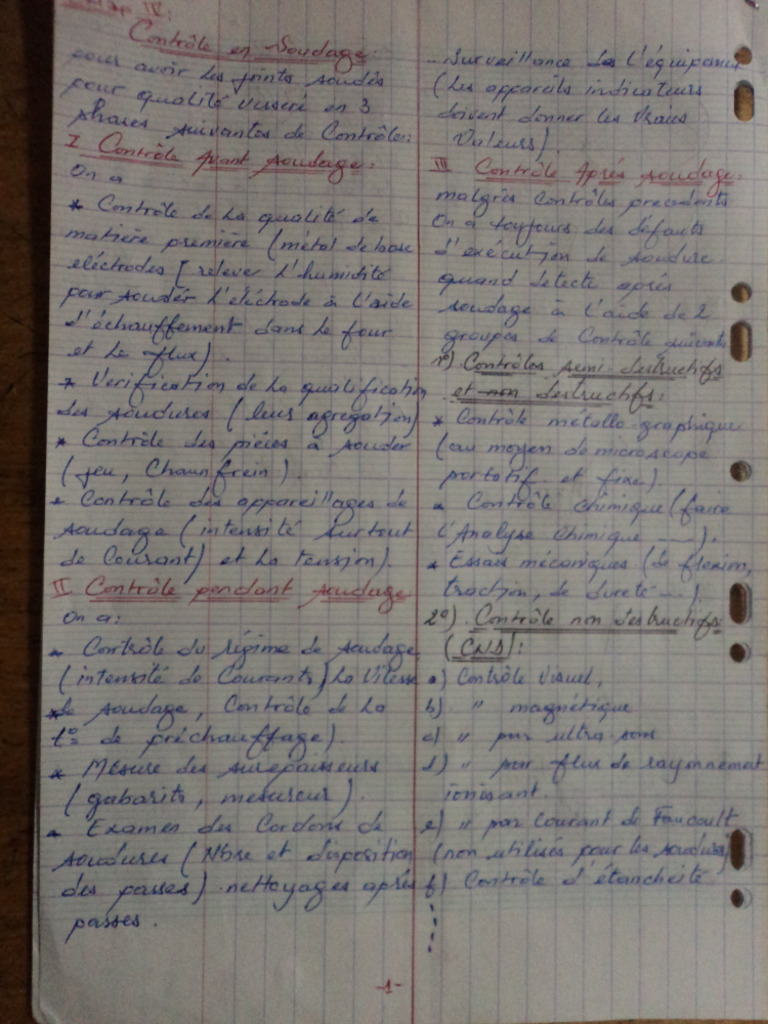 Chap IV:
Contrôle en Soudage:
pour avoir les joints soudés
pour qualité visseré en 3
phases suivantes de Contrôle:
I Contrôle Avant soudage:
On a
* Contrôle de la qualité de
matière première (métal de base
eléctrodes [relever l'humidité
par soudér l'éléctrode à l'aide
d'échauffement dans le four
et le flux).
* Vérification de la qualification
des soudures (leurs agregation)
* Contrôle des pièces à souder
(jeu, Chanfrein).
* Contrôle des appareillages de
soudage (intensité surtout
de Courant) et la tension).
II Contrôle pendant soudage
On a:
* Contrôle du régime de soudage
(intensité de Courants, la Vitesse
de soudage, Contrôle de la
t° de préchauffage).
* Mesure des surepaisseurs
(gabarits, mesureur).
* Examen des Cordons de
soudures (Nbre et disposition
des passes) nettoyages aprés
passes.
-1-
Surveillance de l'équipement
(les appareils indicateurs
doivent donner les vraies
Valeurs).
III Contrôle Aprés soudage:
malgrés contrôles precedents
On a toujours des défauts
d'exécution de soudure
quand detecte aprés
soudage à l'aide de 2
groupes de Contrôle suivants
1°) Contrôles semi-destructifs
et non destructifs:
* Contrôle métallo-graphique
(au moyen de microscope
portatif et fixe).
* Contrôle chimique (faire
l'Analyse chimique ----).
* Essais mécaniques (de flexion,
traction, de dureté ---).
2°) Contrôle non destructifs
(CNS):
a) Contrôle visuel,
b) " magnétique
c) " par ultra sons
d) " par flux de rayonnement
ionisant.
e) " par courant de Foucoult
(non utilisés pour les soudures)
f) Contrôle d'étancheité